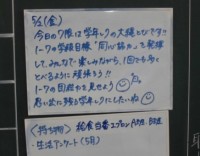 5/2(金)
今日の7限は学年レクの大縄とびです!!
1-7の学級目標"同心協力"を発揮
して、みんなで楽しみながら、1回でも多く
とべるように頑張ろう!!
1-7の団結力を見せよう
思い出に残る学年レクにしたいね
<持ち物> 給食当番エプロン
・生活アンケート(5月)